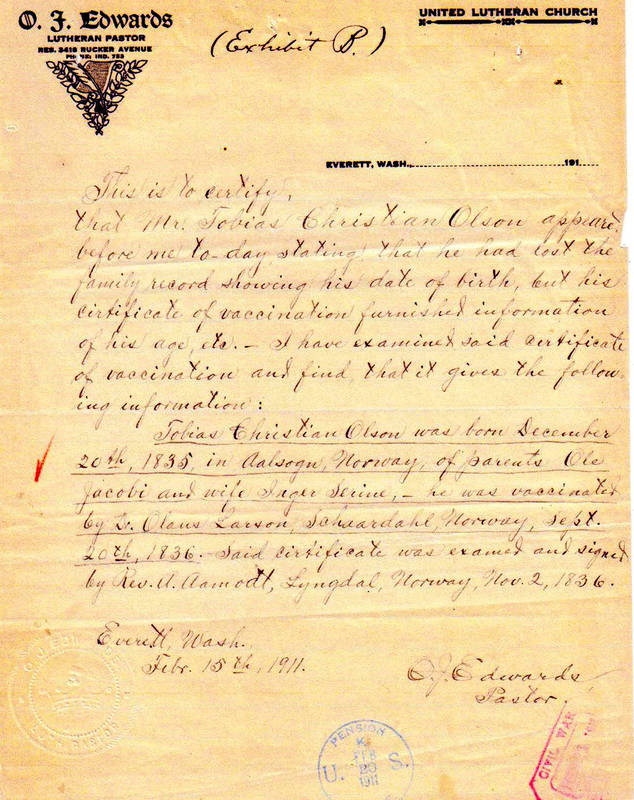 O. J. Edwards
LUTHERAN PASTOR
RES. 3415 RUCKER AVENUE
PHONE: IND. 753
UNITED LUTHERAN CHURCH
(Exhibit B.)
EVERETT, WASH., 191
This is to certify,
that Mr. Tobias Christian Olson appeared
before me to-day stating, that he had lost the
family record showing his date of birth, but his
cirtificate of vaccination furnished information
of his age, etc. – I have examined said cirtificate
of vaccination and find, that it gives the follow-
ing information:
Tobias Christian Olson was born December
20th, 1835, in Aalsogn, Norway, of parents Ole
Jacobi and wife Inger Serine, – he was vaccinated
by L. Olaus Larson, Schaardahl, Norway, Sept.
20th, 1836. – Said cirtificate was examed and signed
by Rev. A. Aamodt, Lyngdal, Norway, Nov. 2, 1836.
Everett, Wash.
Febr. 15th, 1911.
O. J. Edwards
Pastor.
PENSION
FEB
20
1911
U. S.
CIVIL WAR